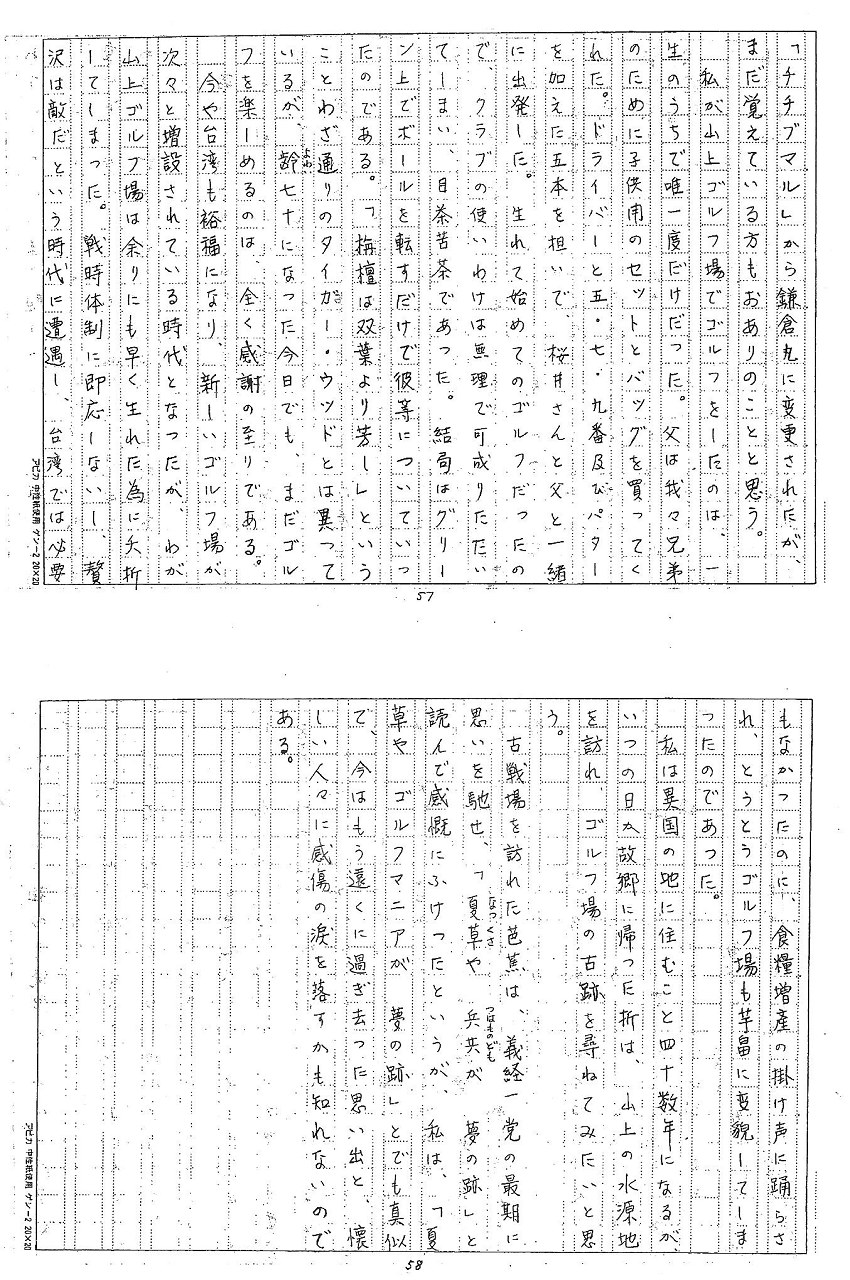 「チチブマル」から鎌倉丸に変更されたが、
まだ覚えている方もおありのことと思う。
私が山上ゴルフ場でゴルフをしたのは、一
生のうちで唯一度だけだった。父は我々兄弟
のために子供用のセットとバッグを買ってく
れた。ドライバーと五・七・九番及びパター
を加えた五本を担いで、桜井さんと父と一緒
に出発した。生れて始めてのゴルフだったの
で、クラブの使いわけは無理で可成りたたい
てしまい、目茶苦茶であった。結局はグリー
ン上でボールを転すだけで彼等についていっ
たのである。「栴檀は双葉より芳し」という
ことわざ通りのタイガー・ウッドとは異って
いるが、齢七十になった今日でも、まだゴル
フを楽しめるのは、全く感謝の至りである。
今や台湾も裕福になり、新しいゴルフ場が
次々と増設されている時代となったが、わが
山上ゴルフ場は余りにも早く生れた為に夭折
してしまった。戦時体制に即応しないし、贅
沢は敵だという時代に遭遇し、台湾では必要
アピカ 中性紙使用 ゲンー2 20×20
57
もなかったのに、食糧増産の掛け声に踊らさ
れ、とうとうゴルフ場も芋畠に変貌してしま
ったのであった。
私は異国の地に住むこと四十数年になるが、
いつの日か故郷に帰った折は、山上の水源地
を訪れ、ゴルフ場の古跡を尋ねてみたいと思
う。
古戦場を訪れた芭蕉は、義経一党の最期に
思いを馳せ、「夏草や 兵共が 夢の跡」と
なつくさ
つはものども
読んで感慨にふけったというが、私は、「夏
草や ゴルフマニアが 夢の跡」とでも真似
で、今はもう遠くに過ぎ去った思い出と、懐
しい人々に感傷の涙を落すかも知れないので
ある。
アピカ 中性紙使用 ゲンー2 20×20
58